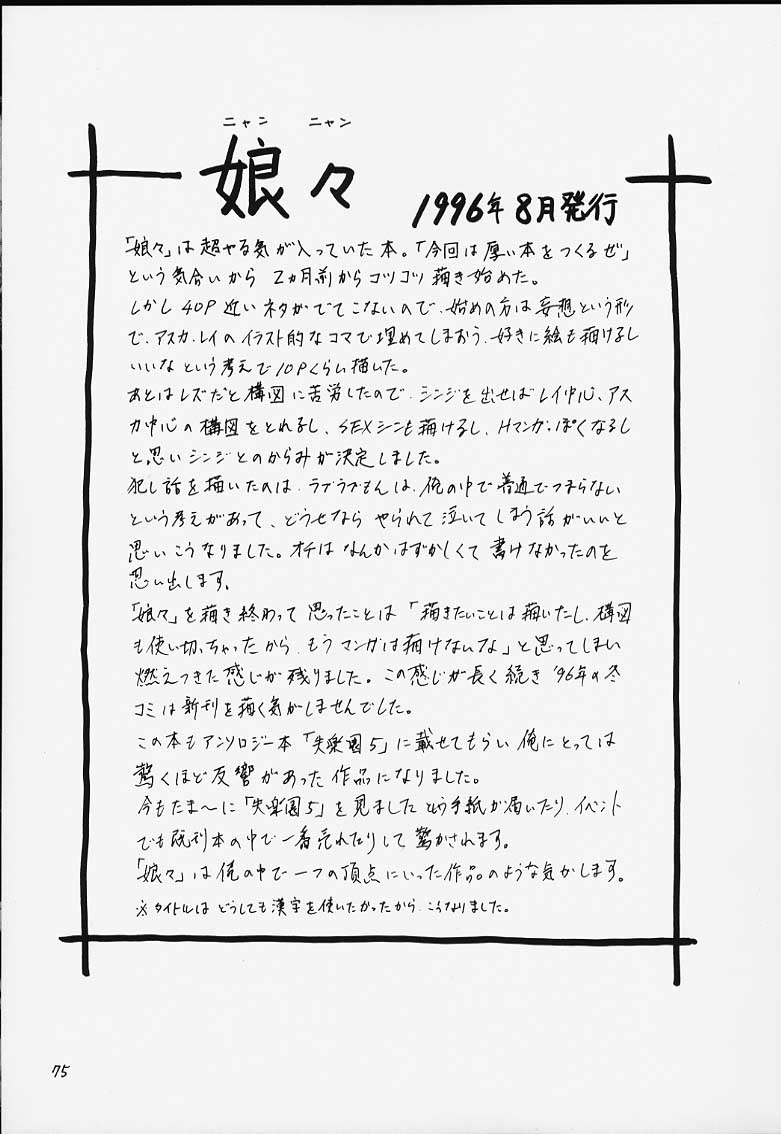 ニャン ニャン
娘々
1996年8月発行
「娘々」は超やる気が入っていた本。「今回は厚い本をつくるぜ」
という気合いから 2ヵ月前からコツコツ描き始めた。
しかし 40P 近いネタがでてこないので、始めの方は妄想という形
で、アスカ、レイのイラスト的なコマで埋めてしまおう、好きに絵も描けるし
いいなという考えで10Pくらい描いた。
あとはレズだと構図に苦労したので、シンジを出せばレイ中心、アス
カ中心の構図をとれるし、SEXシーンも描けるし、Hマンガっぽくなるし
と思いシンジとのからみが決定しました。
犯し話を描いたのは、ラブラブもんは、俺の中で普通でつまらない
という考えがあって、どうせなら やられて泣いてしまう話がいいと
思いこうなりました。オチはなんかはずかしくて書けなかったのを
思い出します。
「娘々」を描き終わって思ったことは「描きたいことは描いたし、構図
も使い切っちゃったから、もうマンガは描けないな」と思ってしまい
燃えつきた感じが残りました。この感じが長く続き '96年の冬
コミは新刊を描く気がしませんでした。
この本もアンソロジー本「失楽園5」に載せてもらい俺にとっては
驚くほど反響があった作品になりました。
今もたま〜に「失楽園5」を見ましたという手紙が届いたり、イベント
でも既刊本の中で一番売れたりして驚かされます。
「娘々」は俺の中で一つの頂点にいった作品のような気がします。
※タイトルは どうしても漢字を使いたかったから、こうなりました。
75